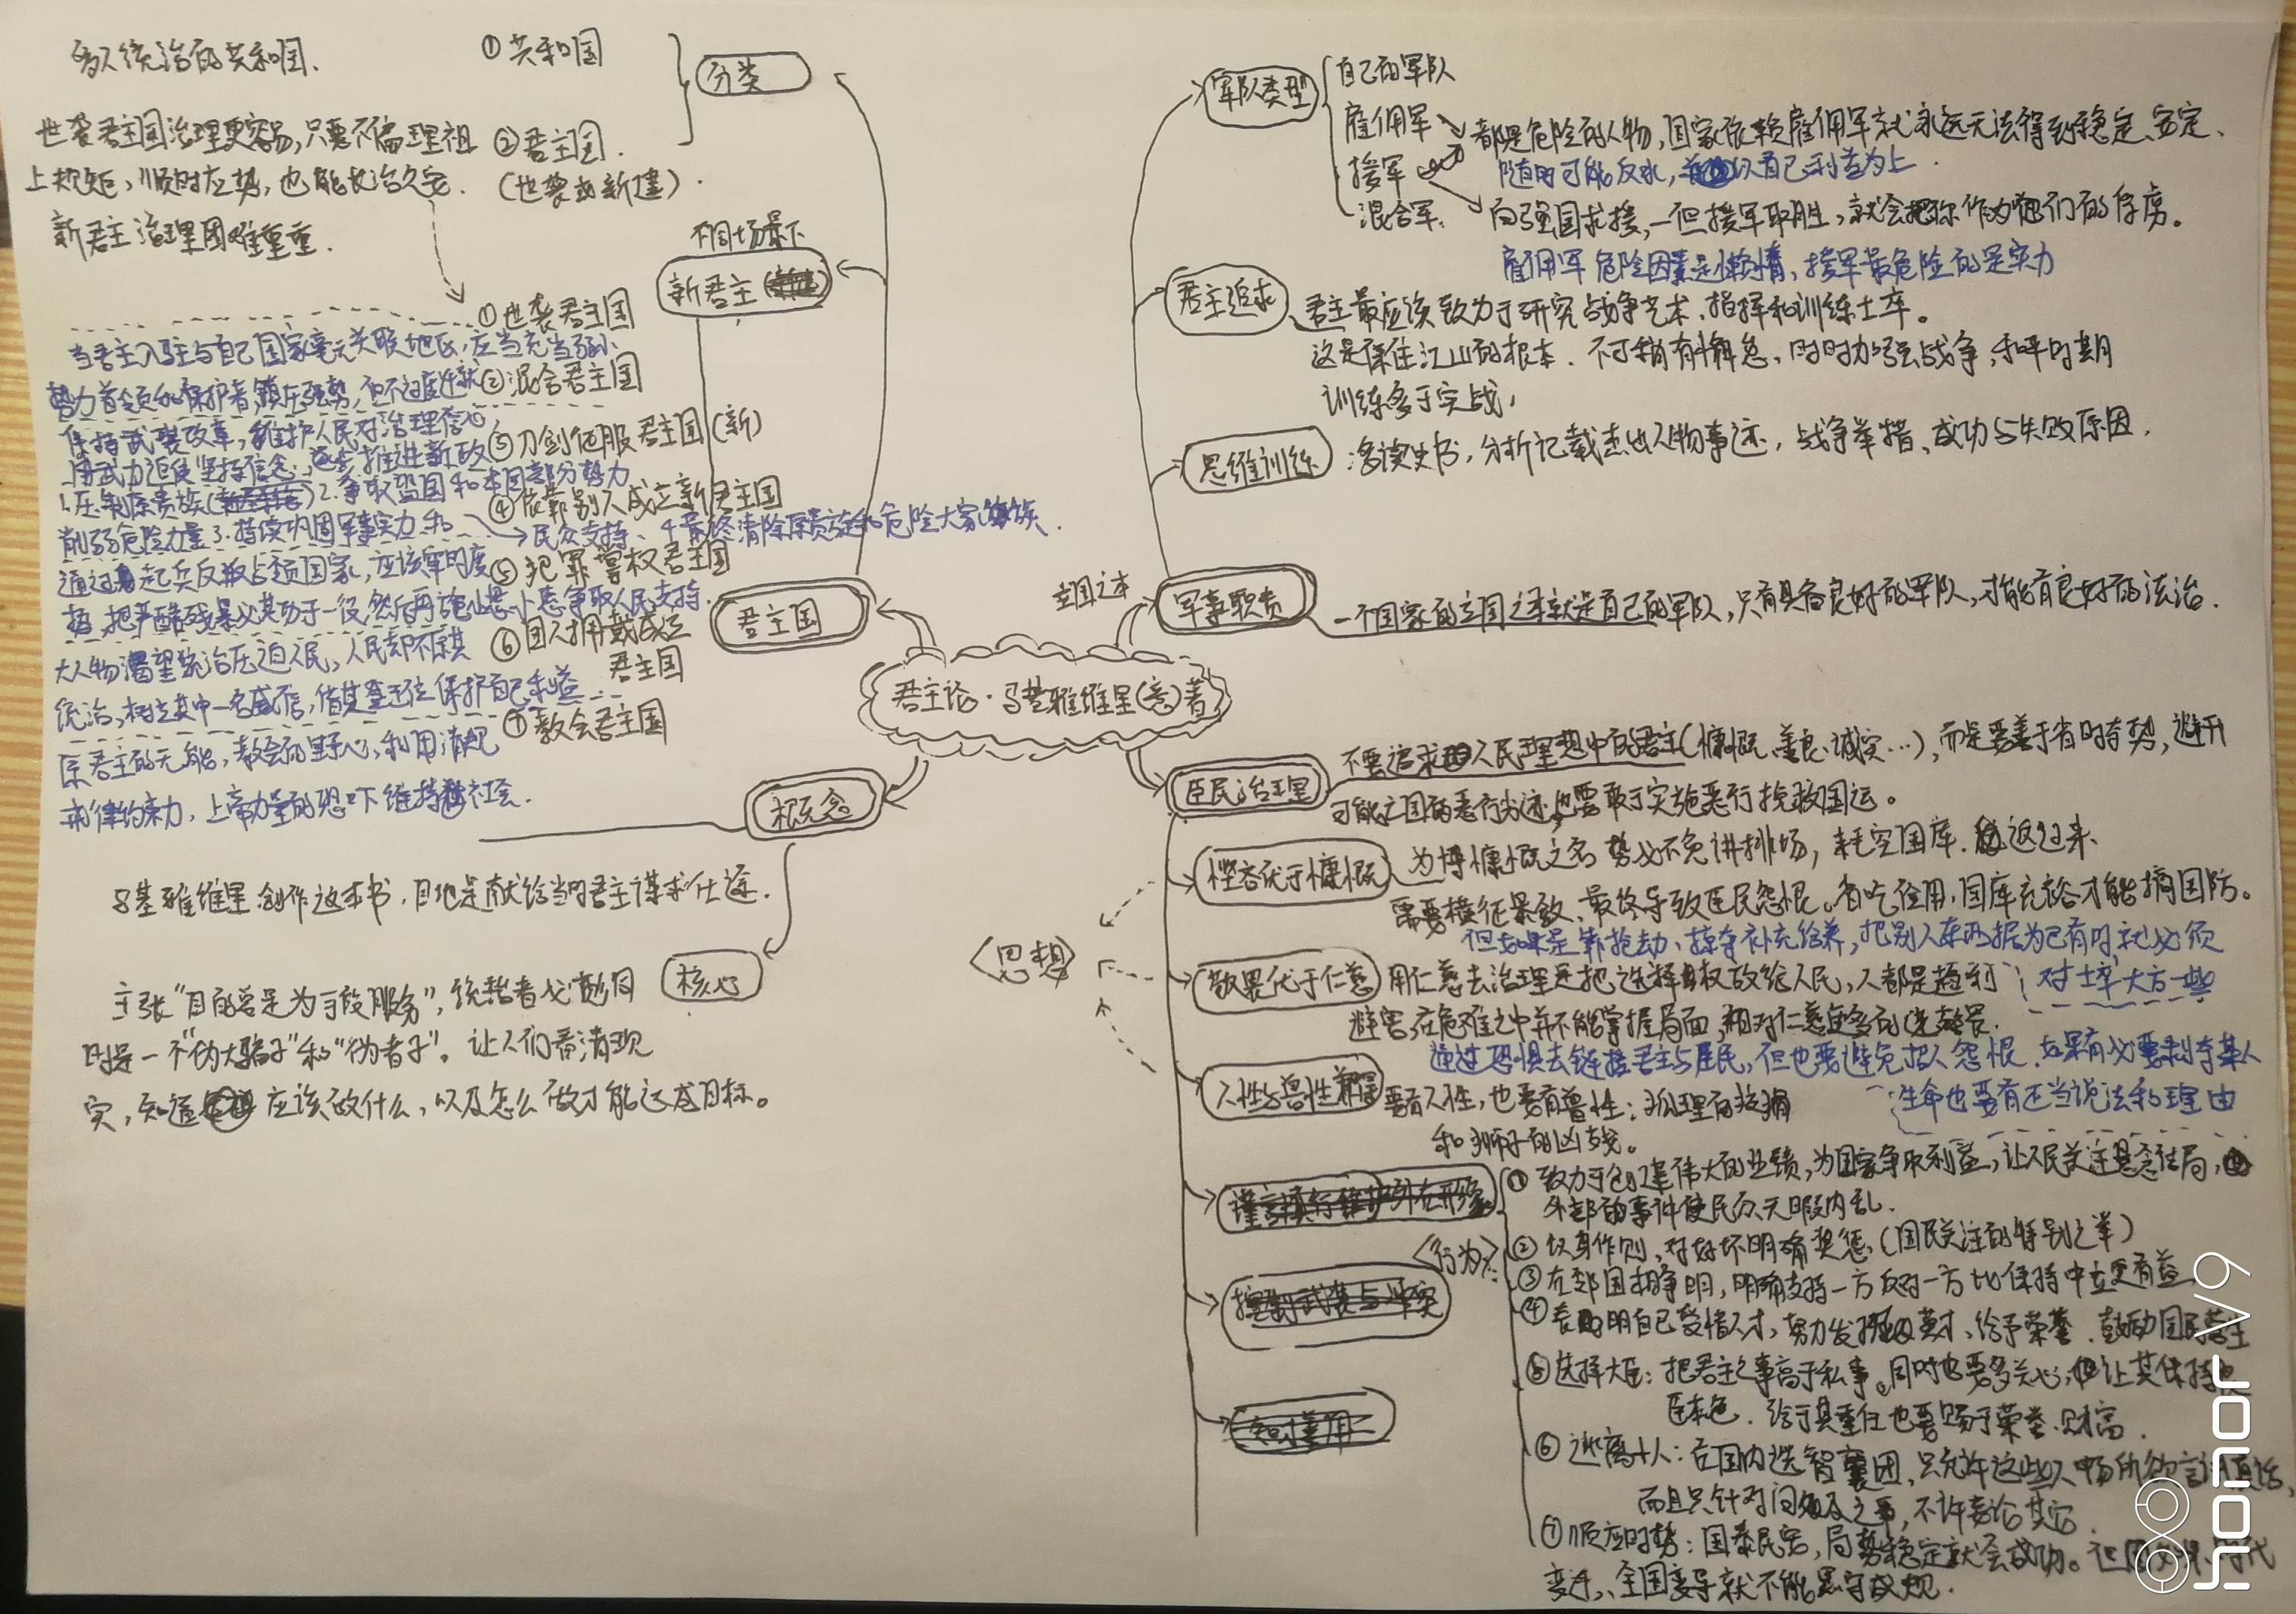 多人统治的共和国.
①共和国
分类
世袭君主国治理更容易,只要不偏理祖
上规矩,顺时应势,也能长治久安.
②君主国.
(世袭或新建).
新君主治理困难重重.
不同场景下
新君主
①世袭君主国
当君主入驻与自己国家毫无关联地区,应当充当弱小
势力首领和保护者,镇压强势,但不过度迁就
②混合君主国
保持武装改革,维护人民对治理信心
③刀剑征服君主国(新)
用武力迫使坚持信念,逐步推进新政
1.压制原贵族 2.争取盟国和本国部分势力
④依靠别人成立新君主国
削弱危险力量 3.持续巩固军事实力和
民众支持、4最终清除原贵族和危险大家族.
⑤犯罪掌权君主国
通过起兵反叛占领国家,应该审时度
势,把严酷残暴必其功于一役,然后再施以恩小惠争取人民支持.
君主国
⑥国人拥戴成立
君主国
大人物渴望统治压迫人民,人民却不保其
统治,树立其中一名威信,借其登王位保护自己利益
⑦教会君主国
原君主的无能,教会的野心,利用清规
戒律约束力,上帝力量的恐吓维持社会.
概念
马基雅维里创作这本书,目地是献给当时君主谋求仕途.
核心
主张"目的总是为手段服务",统治者必须同
时是一个"伪大骗子"和"伪君子"。让人们看清现
实,知道应该做什么,以及怎么做才能达成目标。
君主论·马基雅维里(意)著
军队类型
自己的军队
雇佣军
援军
混合军
都是危险的人物,国家依赖雇佣军就永远无法得到稳定、安定、
随时可能反水,以自己利益为上.
向强国求援,一但援军取胜,就会把你作为他们的俘虏。
雇佣军危险因素是懒惰,援军最危险的是实力
君主追求
君主最应该致力于研究战争艺术、指挥和训练士卒。
这是保住江山的根本.不可稍有懈怠,时时加强战争,和平时期
训练多于实战,
思维训练
多读史书,分析记载杰出人物事迹,战争举措、成功与失败原因.
立国之本
军事职责
一个国家的立国之本就是自己的军队,只有具备良好的军队,才能有良好的法治.
臣民治理
不要追求人民理想中的君主(慷慨、善良、诚实…),而是要善于省时夺势,避开
可能亡国的恶行劣迹,也要敢于实施恶行挽救国运。
悭吝优于慷慨
为博慷慨之名势必不免讲排场,耗空国库.返过来
需要横征暴敛、最终导致臣民怨恨。省吃俭用,国库充裕才能搞国防。
但如果是靠抢劫、掠夺补充给养,把别人东西据为己有时就必须
对士卒大方一些
<思想>
敬畏优于仁慈
用仁慈去治理是把选择权放给人民,人都是趋利
避害,在危难之中并不能掌握局面,相对仁慈更多的是敬畏.
通过恐惧去链接君主与居民,但也要避免招人怨恨.如果有必要剥夺某人
生命也要有正当说法和理由
人性与兽性兼得
要有人性,也要有兽性:狐狸的狡猾
和狮子的凶残。
谨言慎行维护外在形象
<行为>
①致力于创建伟大的业绩,为国家争取利益,让人民关注悬念结局,
外部的事件使民众无暇内乱.
②以身作则,对好坏明确奖惩,(国民关注的特别之举)
③在邻国相争时,明确支持一方反对一方比保持中立更有益
④表明自己爱惜人才,努力发掘英才、给予荣誉.鼓励国民营生
⑤选择大臣:把君主之事高于私事。同时也要多关心,让其保持忠
臣本色.给予其重任也要赐予荣誉、财富.
⑥逃离小人:在国内选智囊团,只允许这些人畅所欲言讲真话,
而且只针对问及之事,不许妄论其它.
⑦顺应时势:国泰民安,局势稳定就会成功。但如果时代
变迁,全国变异就不能墨守成规.
honor V9